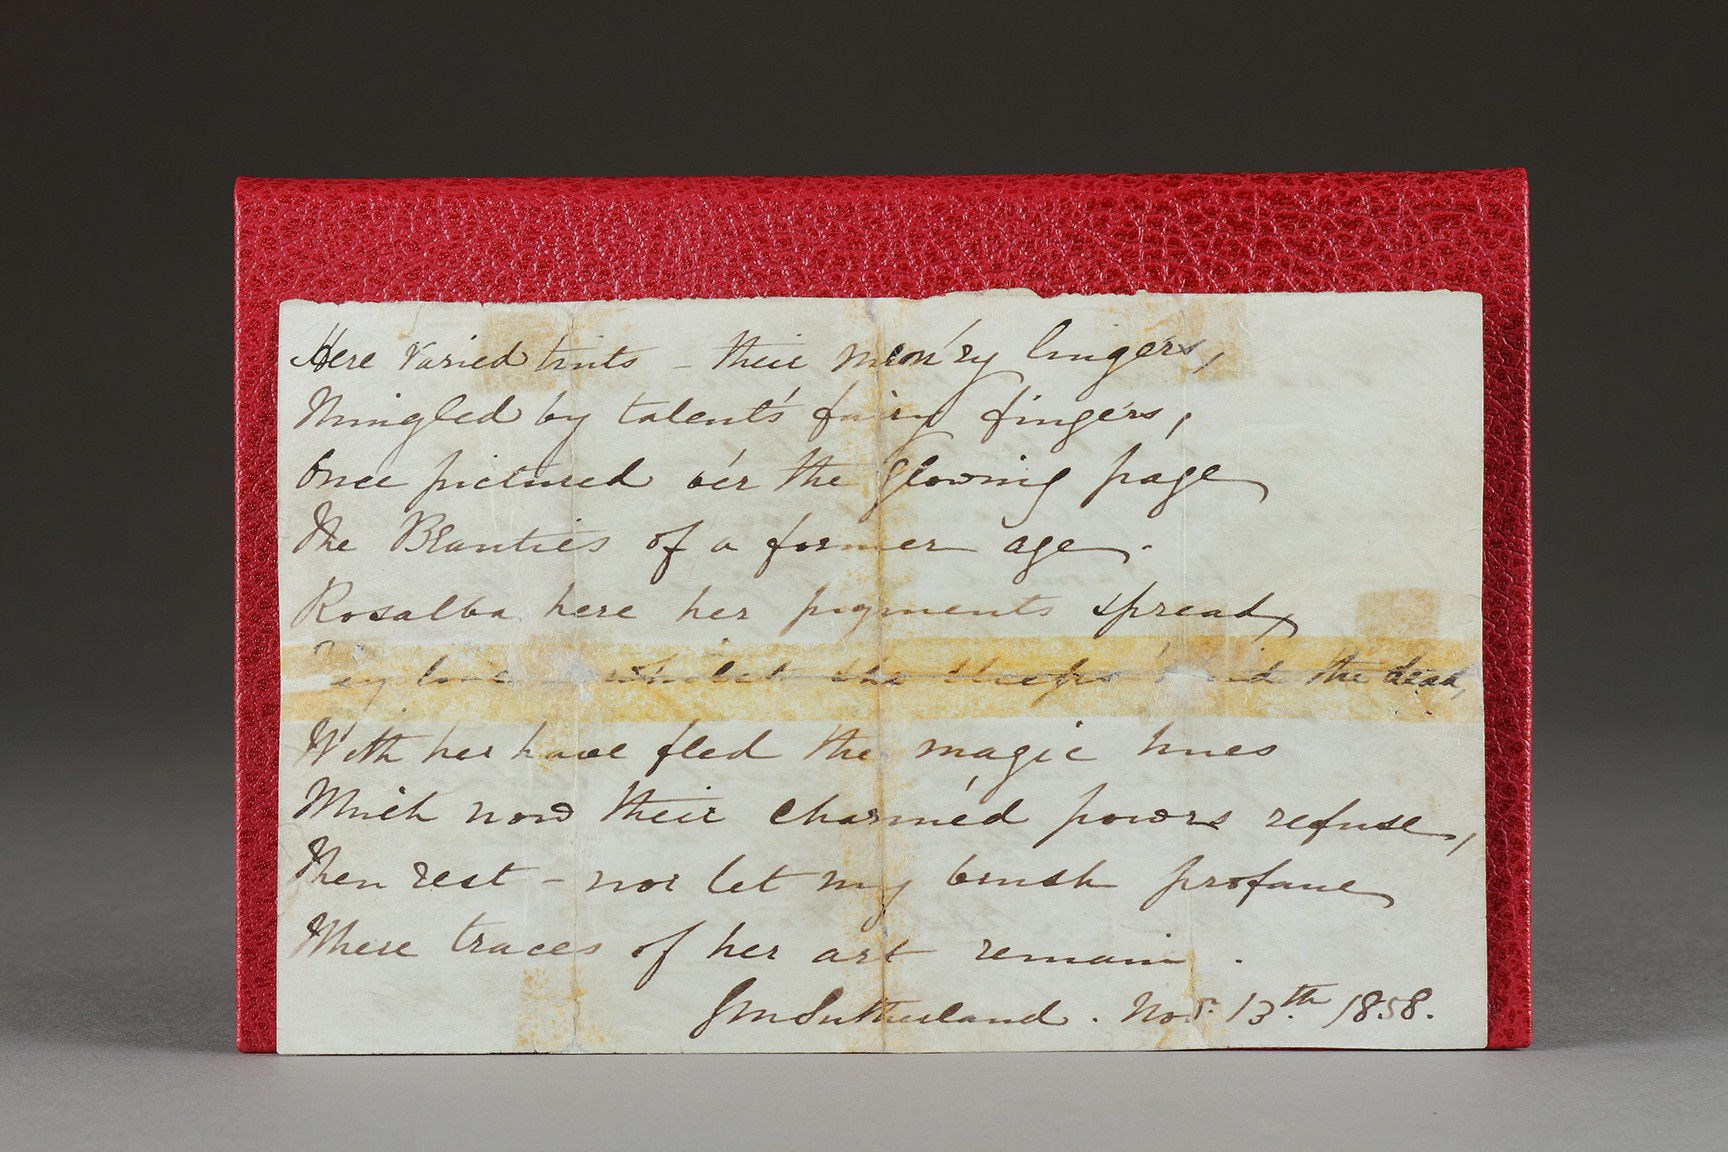 Here varied tints - their mem'ry lingers,
Mingled by talent's fairy fingers,
Once pictured o'er the glowing page
The Beauties of a former age.
Rosalba here her pigments spread,
whilst she sleeps the dead,
With her have fled the magic hues
Which now their charméd powers refuse,
Then rest - nor let my brush profane
Where traces of her art remain.
Sutherland. Nov. 13.th 1858.